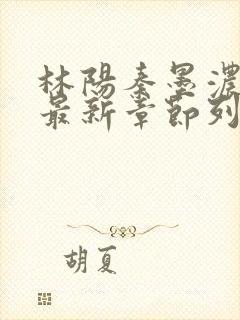 林陽秦墨濃
最新章節列
胡夏